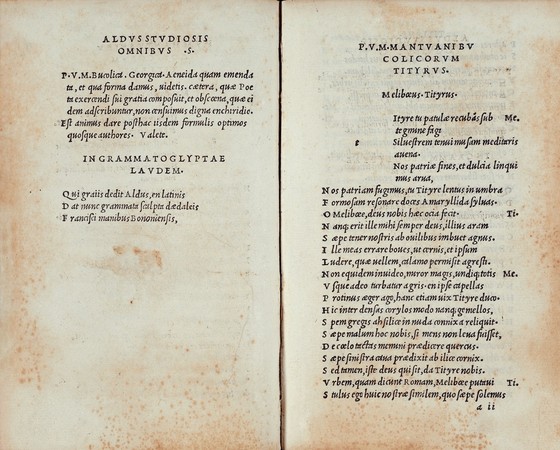 ALDVS STVDIOSIS
OMNIBVS .S.
P.V.M. Bucolica. Georgica. Aeneida quam emenda
ta, et qua forma damus, uidetis. cætera, quæ Poe
ta exercendi sui gratia composuit, et obscœna, quæ ei
dem adscribuntur, non censuimus digna enchiridio.
Est animus dare posthac iisdem formulis optimos
quosque authores. Valete.
IN GRAMMATOGLYPTAE
LAVDEM.
Qui graiis dedit Aldus, en latinis
Dat nunc grammata sculpta dædaleis
Francisci manibus Bononiensis,
P.V.M. MANTVANI BV
COLICORVM
TITYRVS.
Melibœus. Tityrus.
Ityre tu patulæ recubás sub Me.
tegmine fagi
t Siluestrem tenui musam meditaris
auena.
Nos patriæ fines, et dulcia linqui
mus arua,
Nos patriam fugimus, tu Tityre lentus in umbra
Formosam resonare doces Amaryllida syluas.
O Melibœe, deus nobis hæc ocia fecit. Ti.
Nanq; erit ille mihi semper deus, illius aram
Sæpe tener nostris ab ouilibus imbuet agnus.
Ille meas errare boues, ut cernis, et ipsum
Ludere, quæ uellem, calamo permisit agresti.
Non equidem inuideo, miror magis, undiq; totis Me.
Vsque adeo turbatur agris. en ipse capellas
Protinus æger ago, hanc etiam uix Tityre duco.
Hic inter densas corylos modo nanq; gemellos,
Spem gregis ah silice in nuda connixa reliquit.
Sæpe malum hoc nobis, si mens non leua fuisset,
De cœlo tactas memini prædicere quercus.
Sæpe sinistra caua prædixit ab ilice cornix.
Sed tamen, iste deus qui sit, da Tityre nobis.
Vrbem, quam dicunt Romam, Melibœe putaui Ti.
Stultus ego huic nostræ similem, quo sæpe solemus
a ii